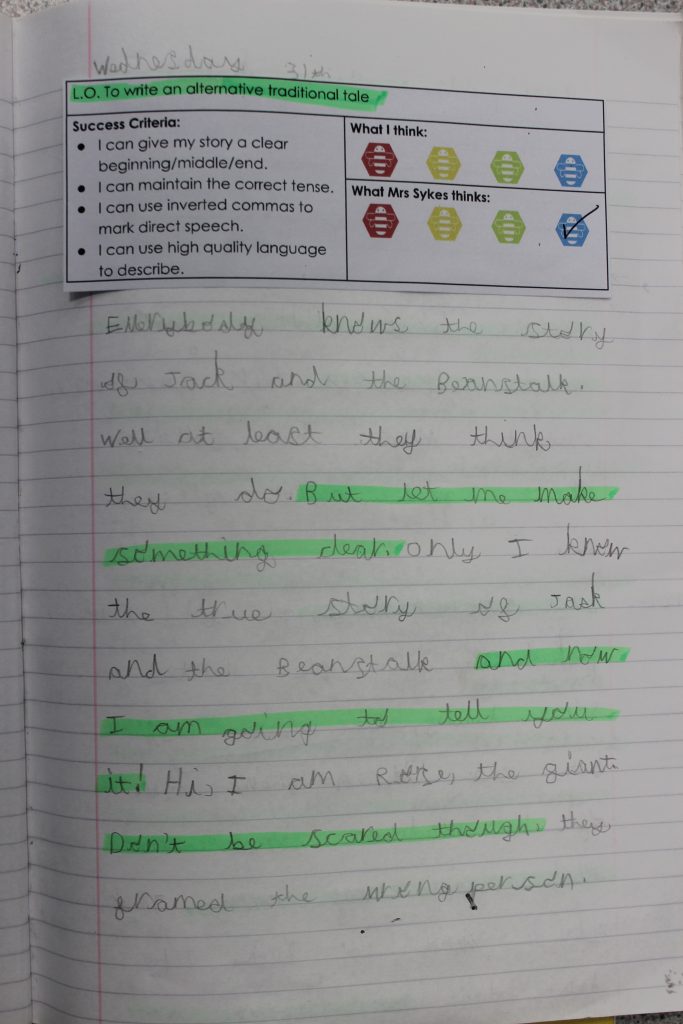 Wednesday 31th
L.O. To write an alternative traditional tale
Success Criteria:
• I can give my story a clear
beginning/middle/end.
• I can maintain the correct tense.
• I can use inverted commas to
mark direct speech.
• I can use high quality language
to describe.
What I think:
What Mrs Sykes thinks:
Everybody knows the story
of Jack and the Beanstalk.
Well at least they think
they do. But let me make
something clear. only I know
the true story of Jack
and the Beanstalk and now
I am going to tell you
it! Hi, I am Rose, the giant.
Don't be scared though, they
framed the wrong person.